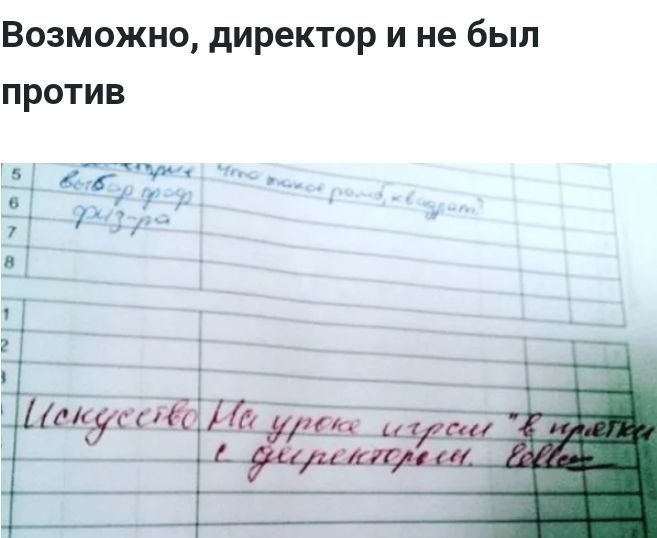 Возможно, директор и не был
против
5 Что такое ромб, квадрат?
6 выбор проф
7 физ-ра
8
1
2
3
Искусство На уроке играл "в прятки
с директором.